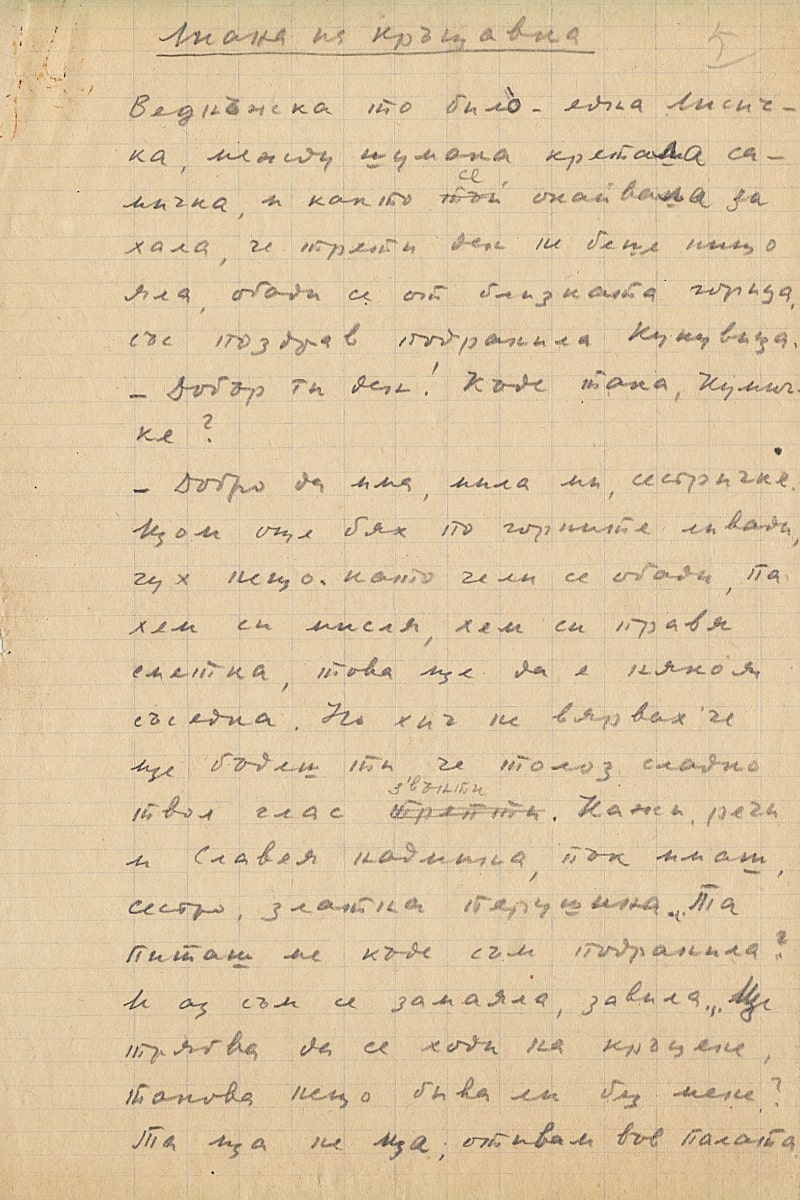 Лиана на кръщавка 5
Веднъжка то било - една Лисич-
ка, между шумака кретала са-
се
мичка, и както той окайвала за
хала, че трети ден не беше нищо
яла, обади се от близката горица,
със поздрав подранила Кукувица.
- Добър ти ден! Къде така, Кумич-
ке?
- Добро да има, мила ми, сестричке.
Щом още бях по горните ливади,
чух нещо. като че ли се обади, па
хем си мисля, хем си правя
сметка, това ще да е някоя
съседка. Но хич не вярвах че
ще бъдеш ти че толоз сладко
з'вънти
твоя глас трепти. Кажи, речи
и Славея надмина, пък имаш,
сестро, златна перушина. „Та
питаш ме къде съм подранила?
И аз съм се замаяла, завила... Ще
трябва да се ходи на кръщене,
такова нещо бива ли без мене?
Та ща не ща, отивам във палата